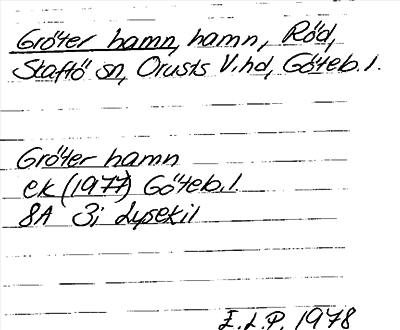 Gröter hamn, hamn, Röd,
Skaftö sn, Orusts V. hd, Göteb. l.
Gröter hamn
ek (1977) Göteb. l.
8A 3i Lysekil
E.L.P. 1978